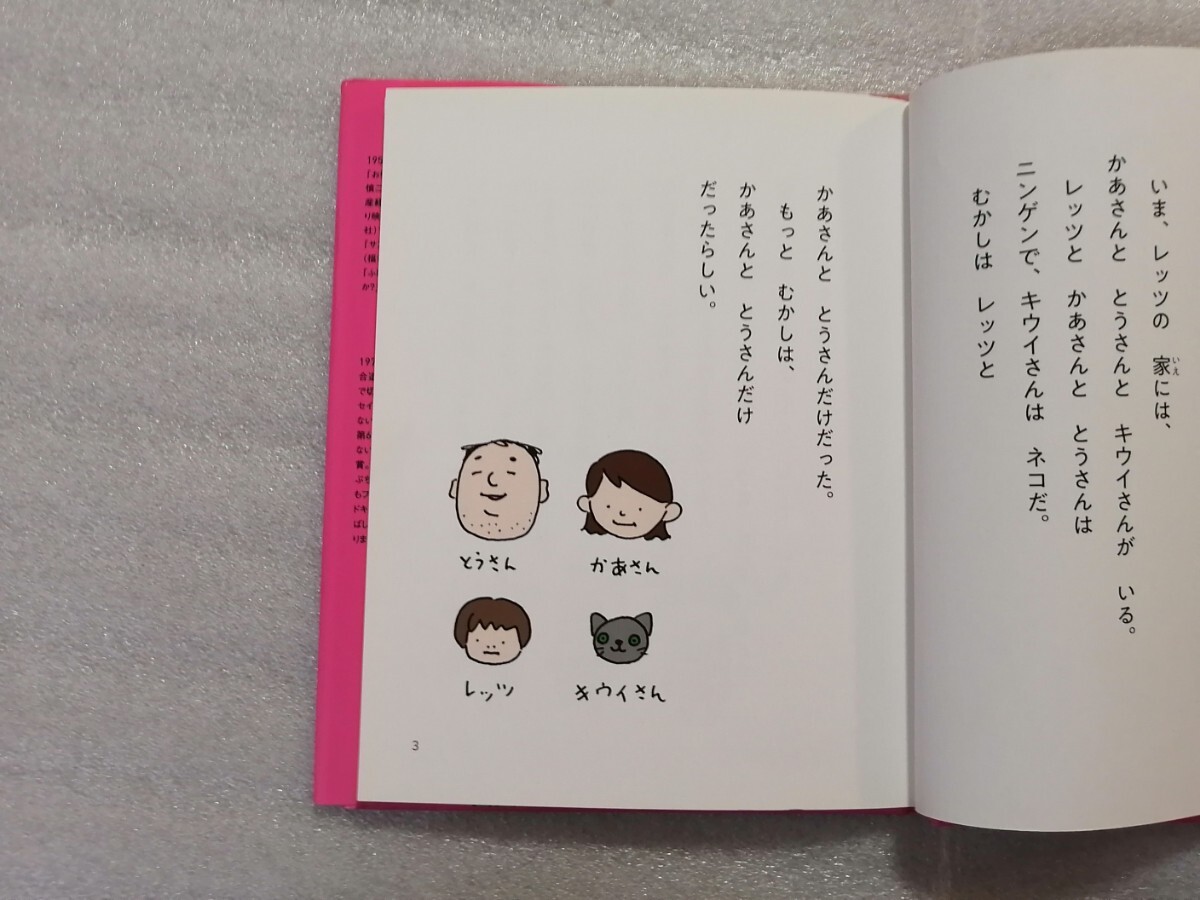 いま、レッツの 家には、
いえ
かあさんと とうさんと キウイさんが いる。
レッツと かあさんと とうさんは
ニンゲンで、キウイさんは ネコだ。
むかしは レッツと
かあさんと とうさんだけだった。
もっと むかしは、
かあさんと とうさんだけ
だったらしい。
とうさん
かあさん
レッツ
キウイさん
3